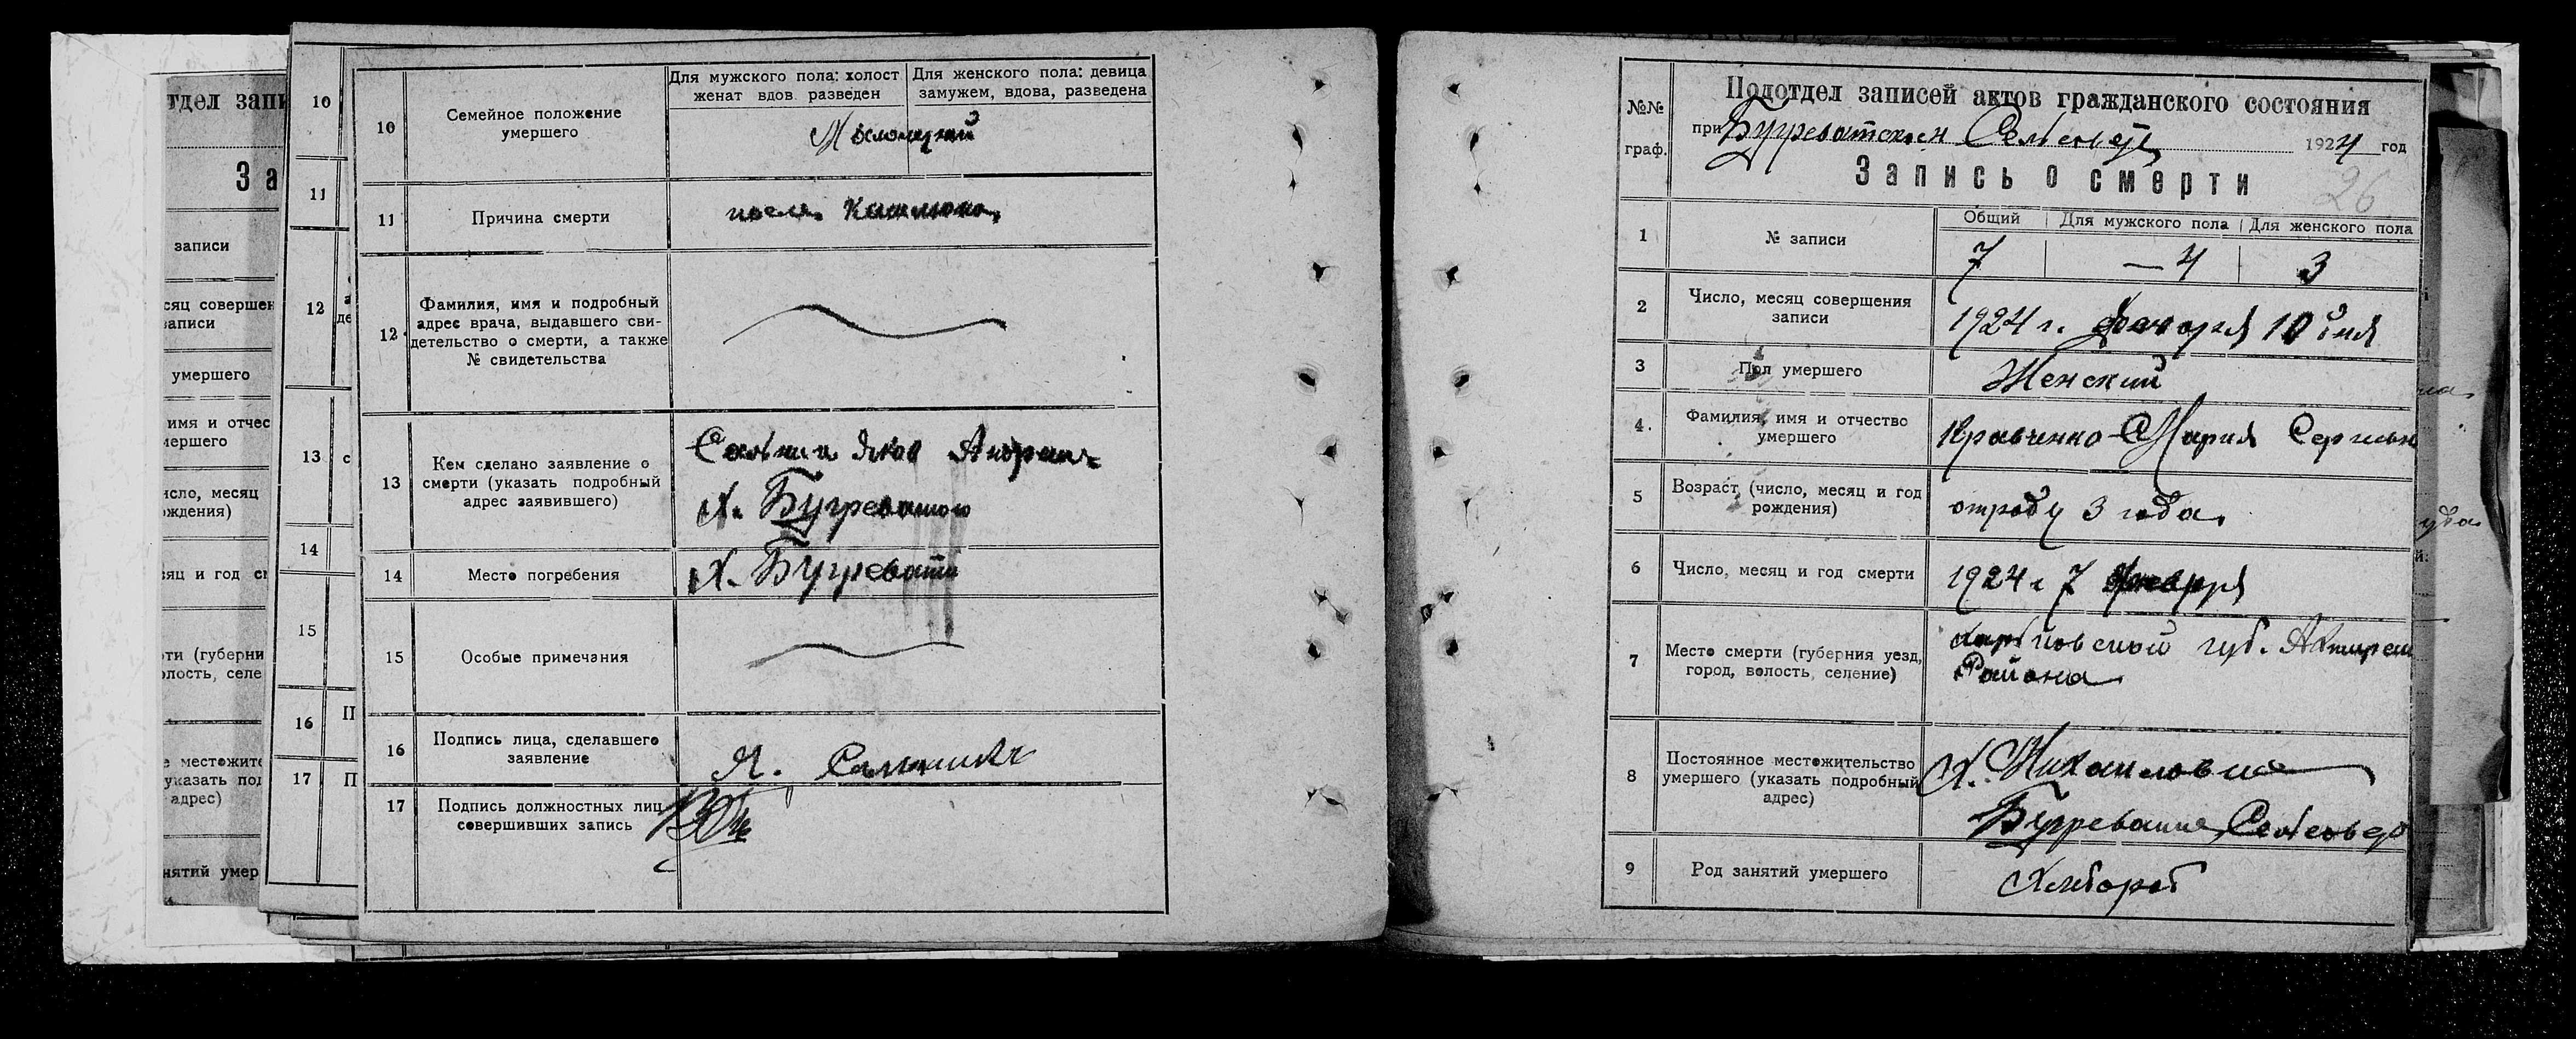 тдел запи
За
записи
сяц совершен
записи
умершего
имя и отчес
мершего
исло, месяц
ождения)
яц и год с
ти (губерни
олость, селе
е местожите
указать под
адрес)
нятий умер
10
11
12
13
14
15
16
17
10
Семейное положение
умершего
Для мужского пола: холост
женат вдов разведен
Для женского пола: девица
замужем, вдова, разведена
11
Причина смерти
после
12
Фамилия, имя и подробный
адрес врача, выдавшего сви-
детельство о смерти, а также
№ свидетельства
13
Кем сделано заявление о
смерти (указать подробный
адрес заявившего)
Яков Андреич
х. Бугреватого
14
Место погребения
х. Бугревати
15
Особые примечания
16
Подпись лица, сделавшего
заявление
Я.
17
Подпись должностных лиц
совершивших запись
№№
граф.
Подотдел записей актов гражданского состояния
при Бугреватском 1924 год
Запись о смерти
26
1
№ записи
Общий Для мужского пола Для женского пола
7 — 4 3
2
Число, месяц совершения
записи
1924 г. 10 дня
3
Пол умершего
Женский
4.
Фамилия, имя и отчество
умершего
Кравченко Мария Сергиевн
5
Возраст (число, месяц и год
рождения)
отроду 3 года
6
Число, месяц и год смерти
1924 г 7 Января
7
Место смерти (губерния уезд,
город, волость, селение)
Харьковской губ. Ахтырск
Района
8
Постоянное местожительство
умершего (указать подробный
адрес)
х. Михайловка
9
Род занятий умершего
Хлебороб